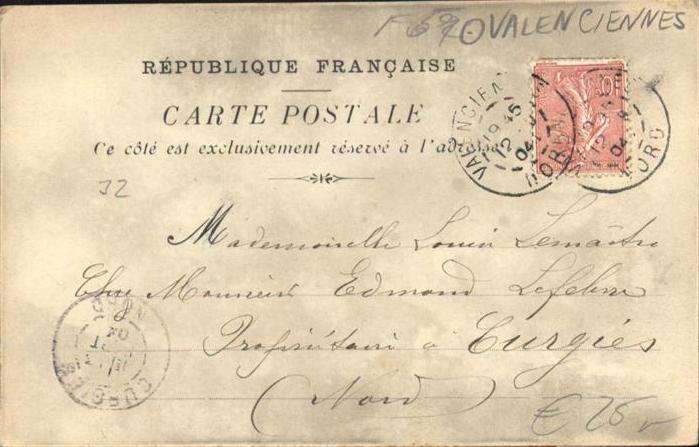 F 59 VALENCIENNES
RÉPUBLIQUE FRANÇAISE
CARTE POSTALE
Ce côté est exclusivement réservé à l'adresse
VALENCIEN
NORD
NORD
10
J2
Mademoiselle Louise Lemaitre
Chez Monsieur Edmond Lefebvre
Propriétaire à Curgies
(Nord)
CURGIES
04
€ 25